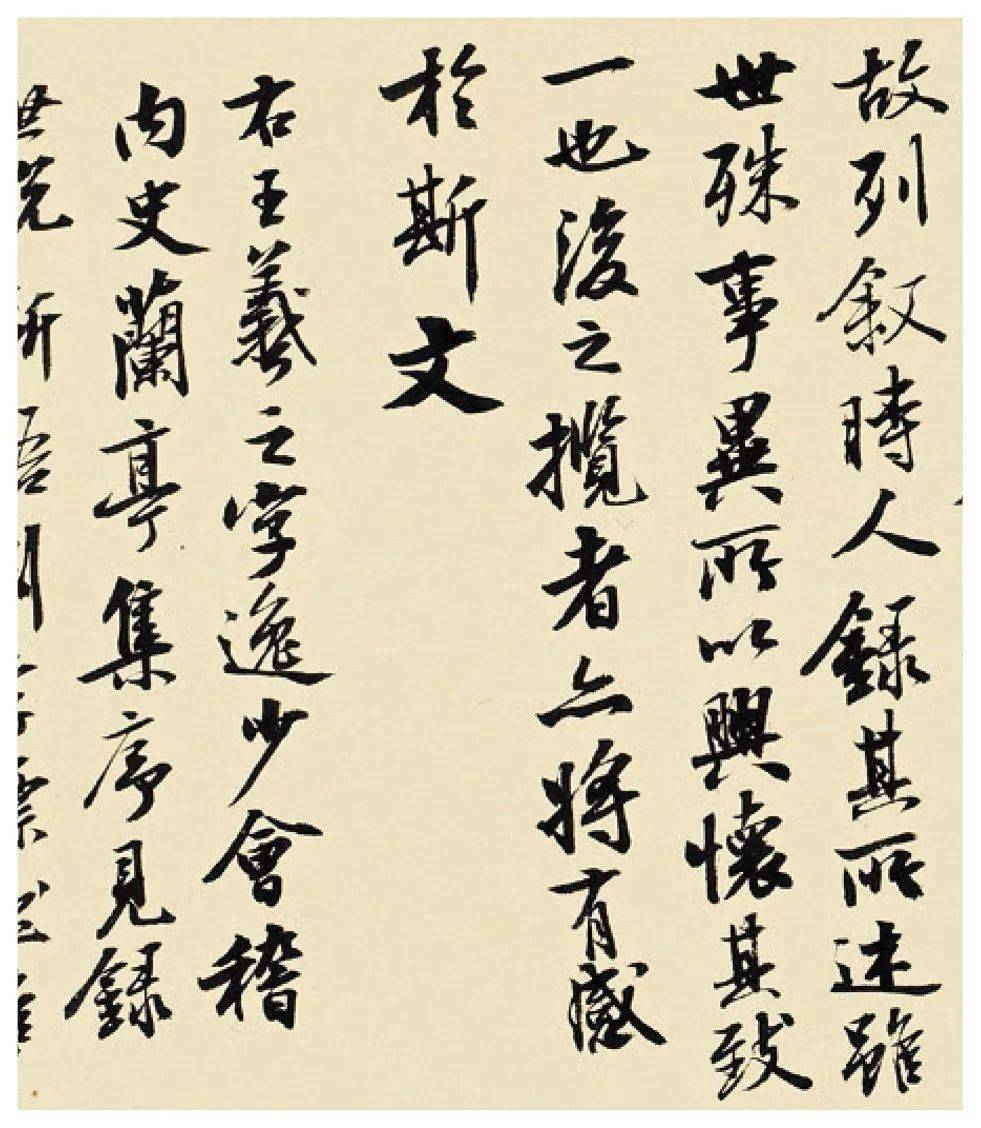 故列敘時人錄其所述雖
世殊事異所以興懷其致
一也後之攬者亦將有感
於斯文
右王羲之字逸少會稽
內史蘭亭集序見錄
世說新語